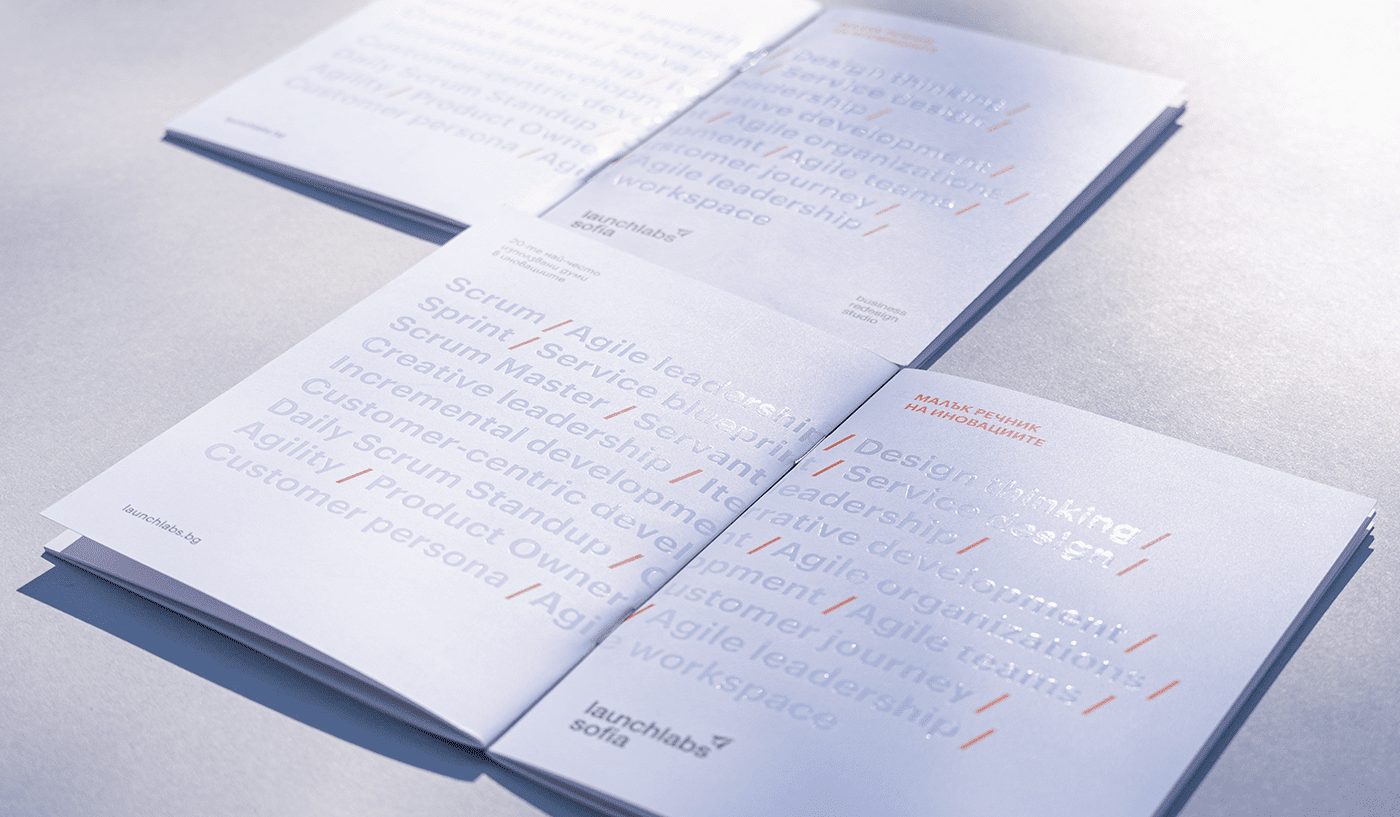 Scrum Master / Servant
Creative leadership /
Incremental development
Customer-centric
Daily Scrum Standup /
Agility / Product Owner
Customer persona / Agile
launchlabs.bg
МАЛЪК РЕЧНИК
НА ИНОВАЦИИТЕ
/ Design thinking /
/ Service design /
leadership /
rative development /
/ Agile organizations /
/ Agile teams /
Customer journey /
/ Agile leadership /
workspace
launchlabs
sofia
business
redesign
studio
20-те най-често
използвани думи
в иновациите
МАЛЪК РЕЧНИК
НА ИНОВАЦИИТЕ
Scrum / Agile leadership / Design thinking /
Sprint / Service blueprint / Service design /
Scrum Master / Servant leadership /
Creative leadership / Iterrative development /
Incremental development / Agile organizations /
Customer-centric development / Agile teams /
Daily Scrum Standup / Customer journey /
Agility / Product Owner / Agile leadership /
Customer persona / Agile workspace
launchlabs.bg
launchlabs
sofia